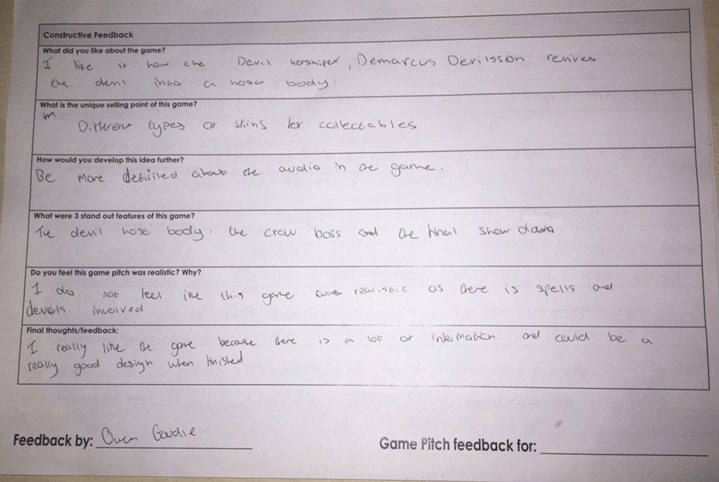 Constructive Feedback
What did you like about the game?
I like it how the Devil worshiper, Demarcus Devilsson revives
the devil into a host body.
What is the unique selling point of this game?
Different types of skins for collectables
How would you develop this idea further?
Be more detailed about the audio in the game.
What were 3 stand out features of this game?
The devil host body, the crew boss and the final show down
Do you feel this game pitch was realistic? Why?
I do not feel like this game realistic as there is spells and
devils involved
Final thoughts/feedback:
I really like the game because there is a lot of information and could be a
really good design when finished
Feedback by: Owen Goudie
Game Pitch feedback for: